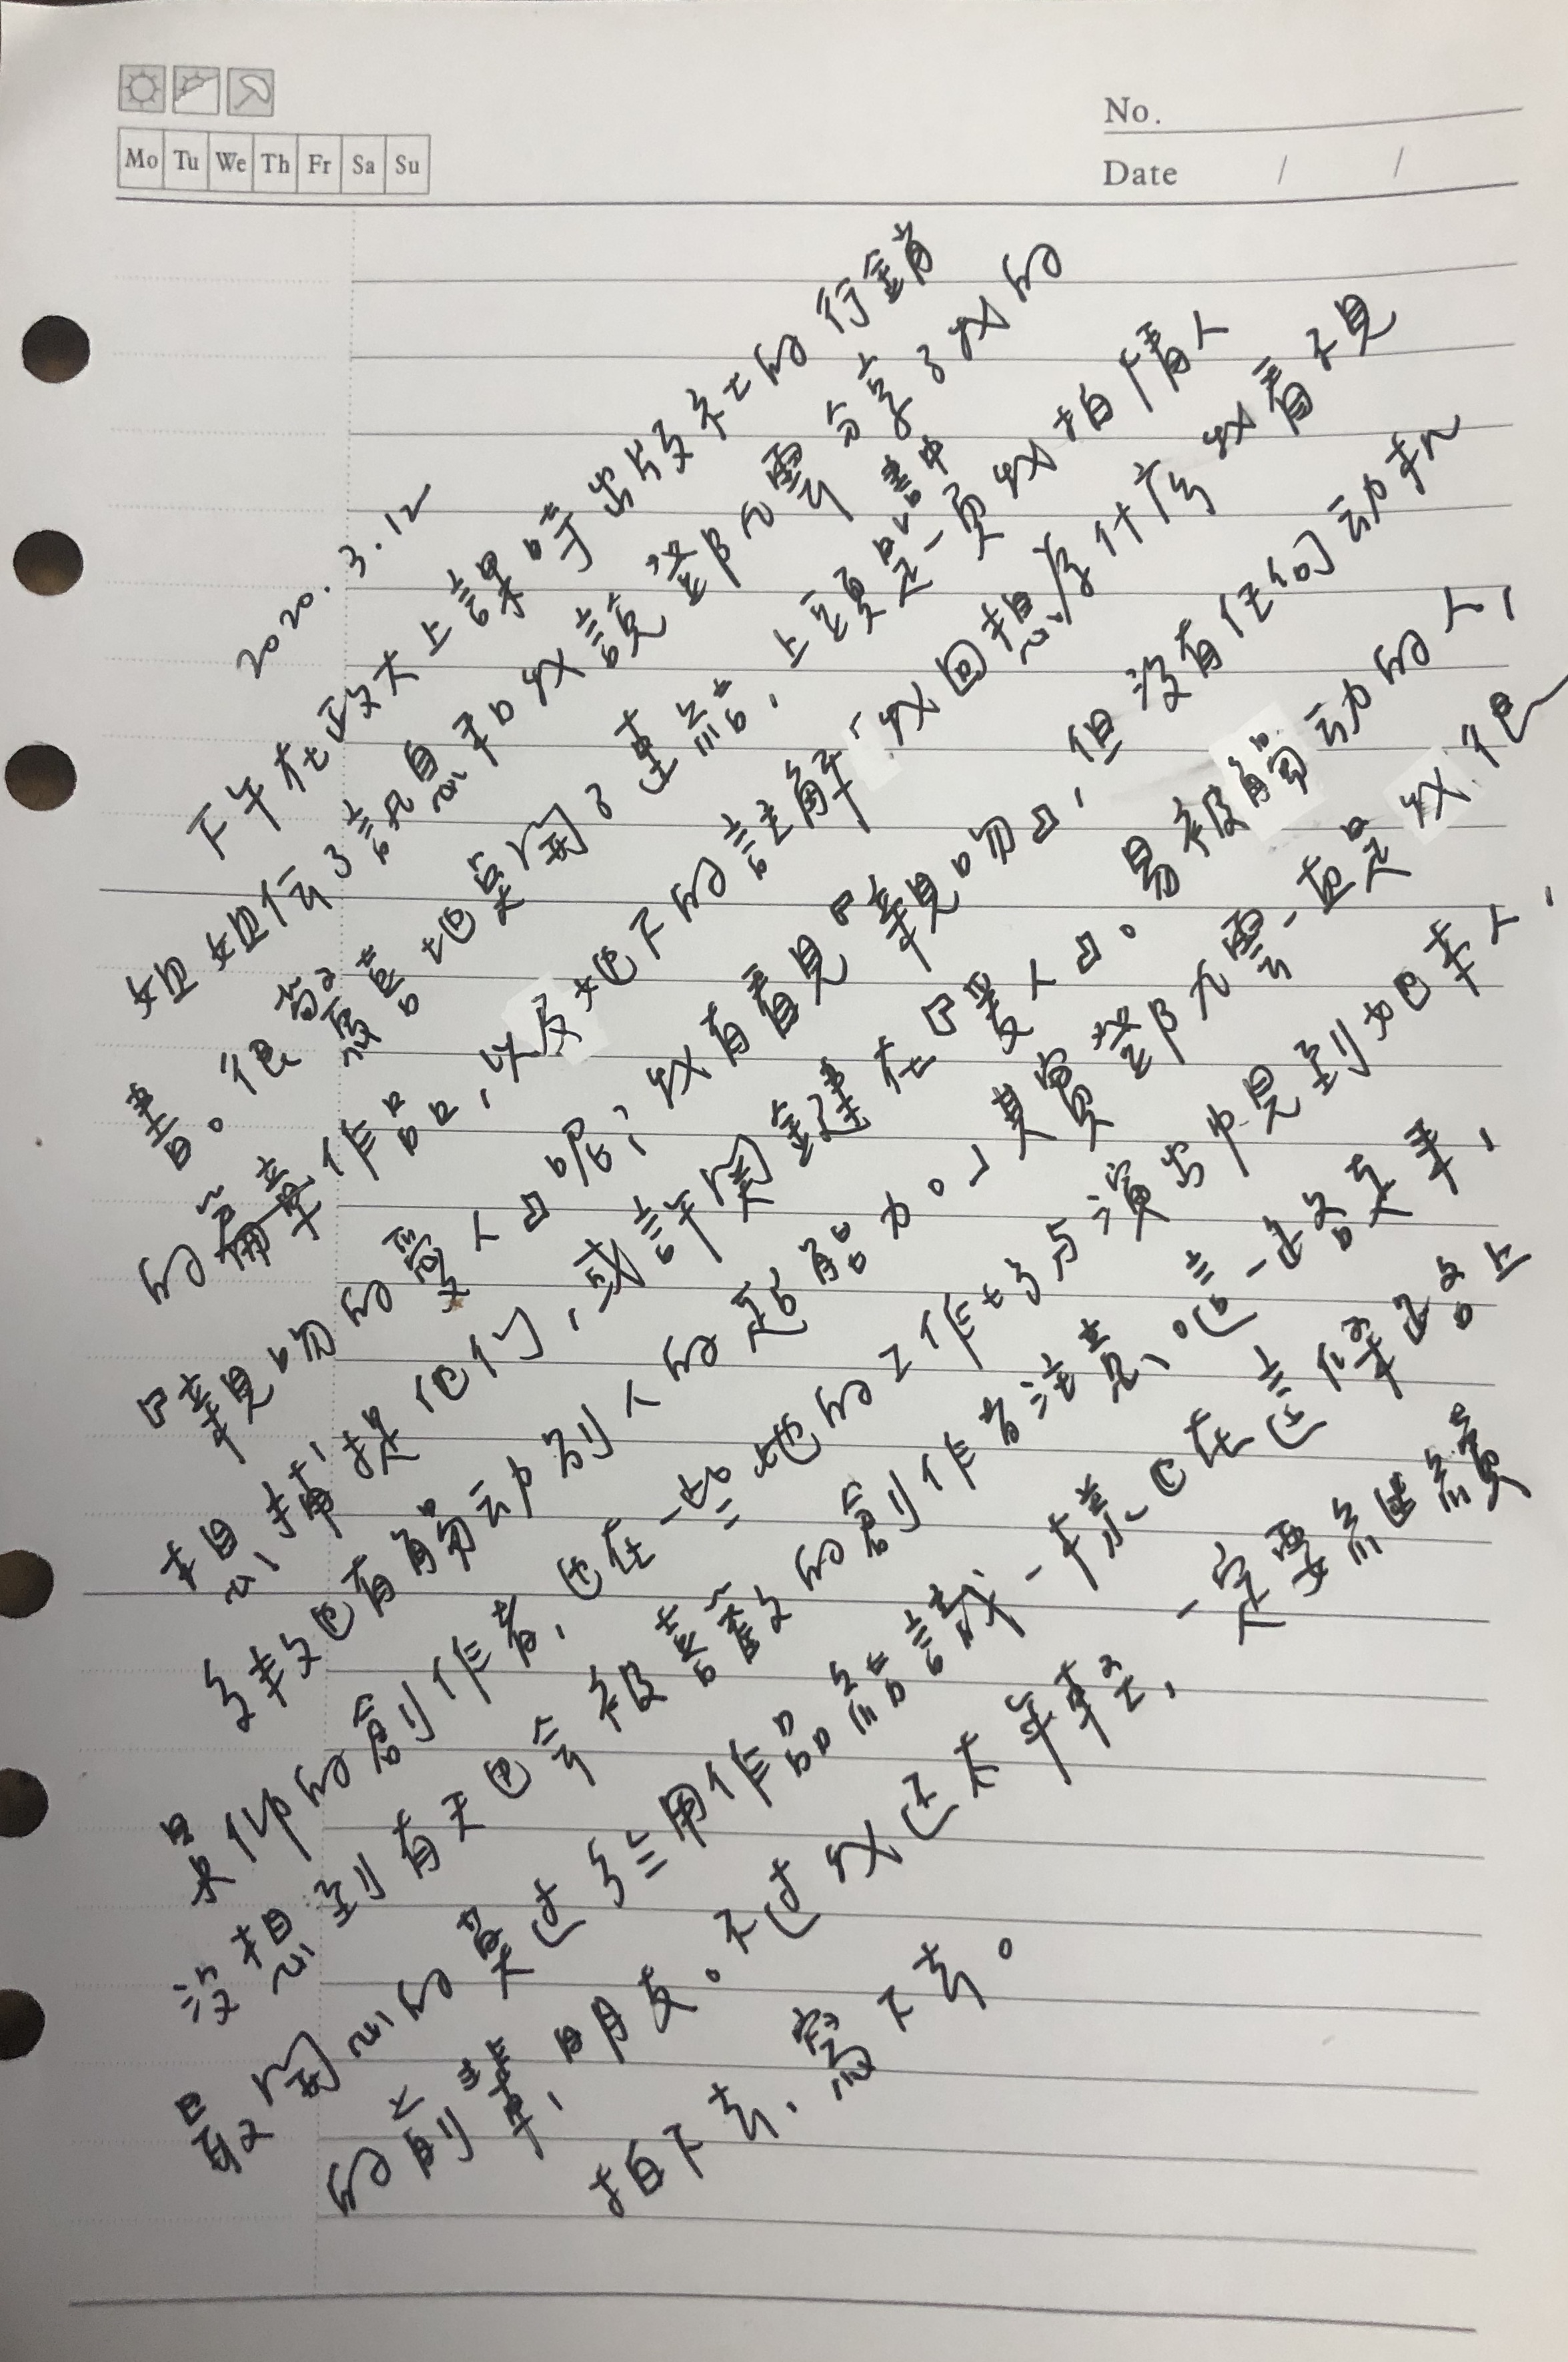 No.
Mo Tu We Th Fr Sa Su
Date / /
2020.3.12
下午在政大上課時出版社的行銷
姐姐傳了訊息和我說鄧九雲分享了我的
書。很意地點開了連結,上頭是一頁我拍情人
書中
的篇章作品,以及她下的註解「我回想為什麼我看不見
『親吻的愛人』呢?我有看見『親吻』,但沒有任何动机
想捕捉他们,或許関鍵在『愛人』。易被觸动的人,
多半也有觸动别人的能力。」其實鄧九雲一直是我很
景仰的創作者,也在一些她的工作坊与演出中見到她本人,
沒想到有天也会被喜歡的創作者注意。这一路走来,
最開心的莫过於用作品結識一樣也在這條路上
的前輩、朋友。不过我还太年輕,一定要繼續
拍下去、寫下去。